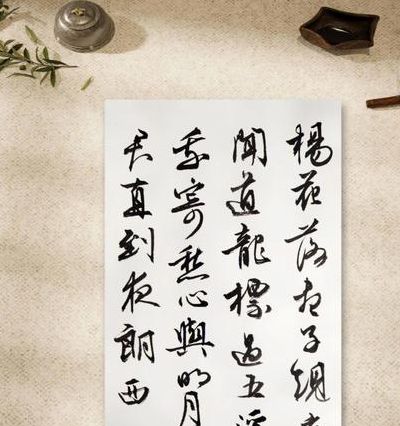 楊花落盡子規
聞道龍標過五
我寄愁心與明月
君直到夜郎西